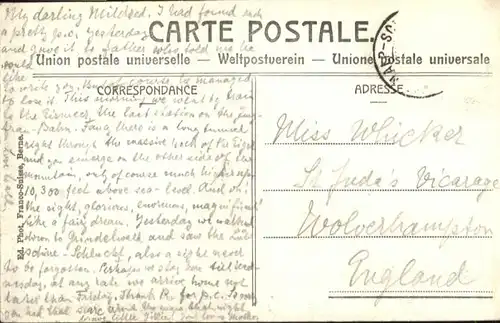 My darling Mildred. I had found such
a pretty p.c. yesterday
and gave it to father who told me he
would
like
to write you. But of course he managed
to lose it. This morning we went by train
to the Eismeer the last station on the Jung-
frau-Bahn. Fancy there is a long tunnel
right through the massive rock of the Eiger
and you emerge on the other side of the
mountain, only of course much higher up
10,300 feet above sea-level. And oh!
the sight, glorious, enormous, magnificent
like a fair dream. Yesterday we walked
down to Grindelwald and saw the Lüt-
schine-Schlucht, also a sight never
to be forgotten. Perhaps we stay here till Wed-
nesday, at any rate we arrive home not
later than Friday. Thank you for p.c.
you had that
love to all.
CARTE POSTALE.
Union postale universelle — Weltpostverein — Unione postale universale
CORRESPONDANCE
ADRESSE
Miss Whicker
St Jude's Vicarage
Wolverhampton
England
Ed. Phot. Franco-Suisse, Berne.